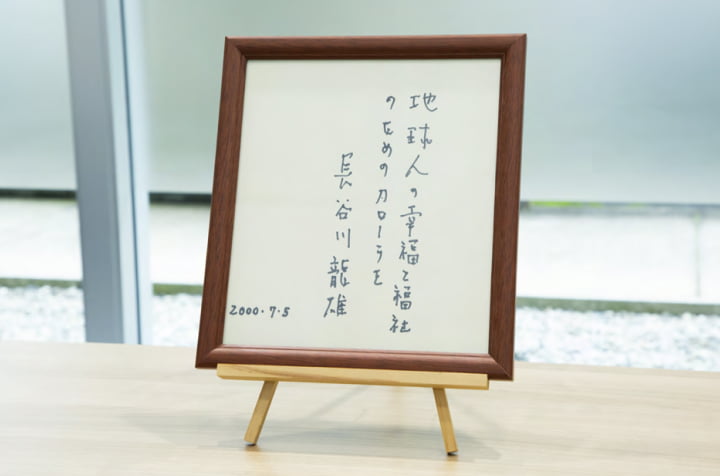 地球人の幸福と福祉
のためのカローラを
長谷川龍雄
2000.7.5